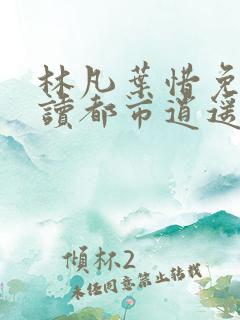 林凡葉惜免
讀都市逍遥
傾杯2
未经同意禁止转载